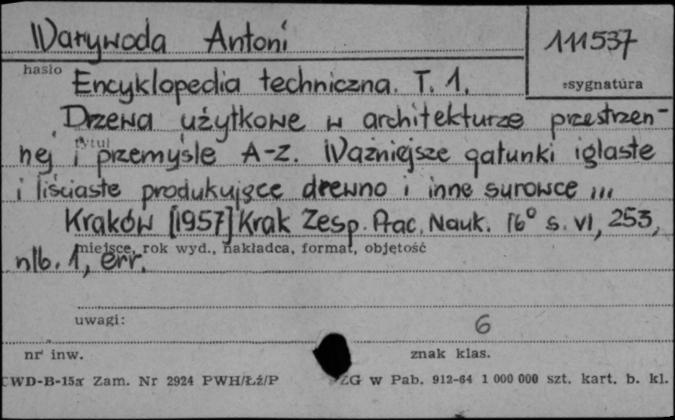 Warywoda Antoni
111537
hasło
sygnatura
Encyklopedia techniczna. T. 1.
Drzewa użytkowe w architekturze przestrzen-
tytuł
nej i przemyśle A-Z. Ważniejsze gatunki iglaste
i liściaste produkujące drewno i inne surowce ...
Kraków [1957] Krak Zesp. Prac. Nauk. 16° s. VI, 253,
miejsce, rok wyd., nakładca, format, objętość
nlb. 1, err.
uwagi:
6
nr inw.
znak klas.
CWD-B-15a Zam. Nr 2924 PWH/Łź/P
ZG w Pab. 912-64 1 000 000 szt. kart. b. kl.